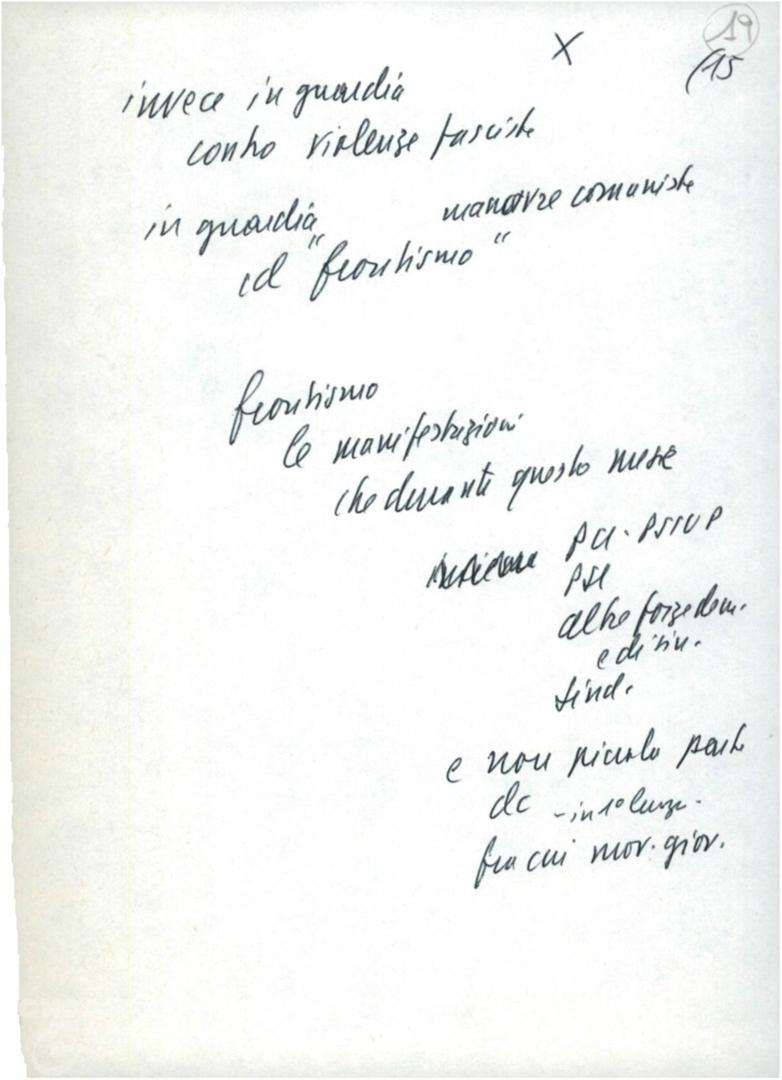 X
19
(15
invece in guardia
contro violenze fasciste
in guardia manovre comuniste
ed "frontismo"
frontismo
le manifestazioni
che durante questo mese
insieme PCI-PSIUP
PSI
altre forze dem.
e di sin.
sind.
e non piccola parte
dc
fra cui mov. giov.